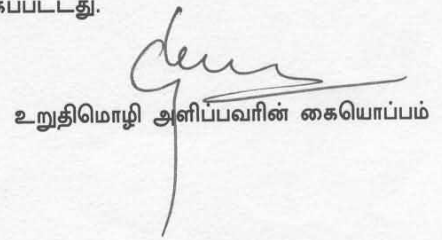 கப்பட்டது.
உறுதிமொழி அளிப்பவரின் கையொப்பம்